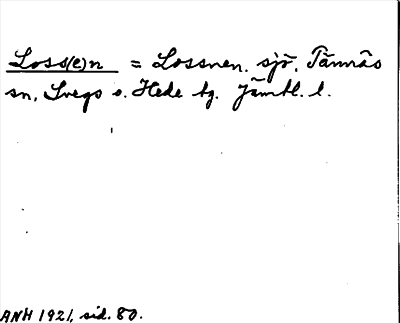 Loss(e)n = Lossnen. sjö, Tännäs
sn, Svegs o. Hede tg. Jämtl. l.
ANH 1921, sid. 80.